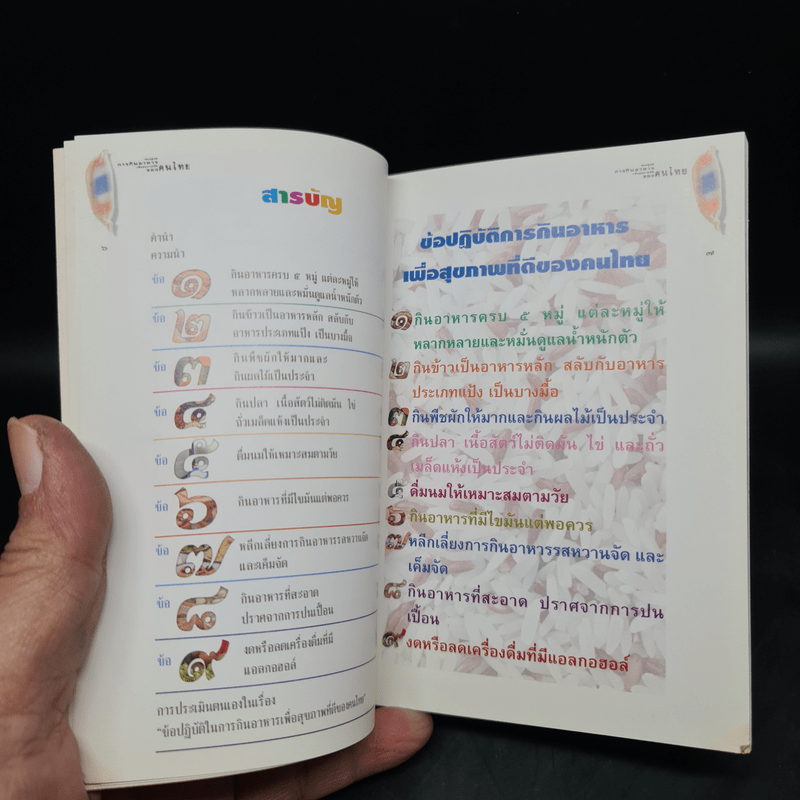 การกินอาหาร
ของคนไทย
๖
สารบัญ
คำนำ
ความนำ
ข้อ ๑ กินอาหารครบ ๕ หมู่ แต่ละหมู่ให้
หลากหลายและหมั่นดูแลน้ำหนักตัว
ข้อ ๒ กินข้าวเป็นอาหารหลัก สลับกับ
อาหารประเภทแป้ง เป็นบางมื้อ
ข้อ ๓ กินพืชผักให้มากและ
กินผลไม้เป็นประจำ
ข้อ ๔ กินปลา เนื้อสัตว์ไม่ติดมัน ไข่
ถั่วเมล็ดแห้งเป็นประจำ
ข้อ ๕ ดื่มนมให้เหมาะสมตามวัย
ข้อ ๖ กินอาหารที่มีไขมันแต่พอควร
ข้อ ๗ หลีกเลี่ยงการกินอาหารรสหวานจัด
และเค็มจัด
ข้อ ๘ กินอาหารที่สะอาด
ปราศจากการปนเปื้อน
ข้อ ๙ งดหรือลดเครื่องดื่มที่มี
แอลกอฮอล์
การประเมินตนเองในเรื่อง
"ข้อปฏิบัติในการกินอาหารเพื่อสุขภาพที่ดีของคนไทย"
การกินอาหาร
ของคนไทย
๗
ข้อปฏิบัติการกินอาหาร
เพื่อสุขภาพที่ดีของคนไทย
๑ กินอาหารครบ ๕ หมู่ แต่ละหมู่ให้
หลากหลายและหมั่นดูแลน้ำหนักตัว
๒ กินข้าวเป็นอาหารหลัก สลับกับอาหาร
ประเภทแป้ง เป็นบางมื้อ
๓ กินพืชผักให้มากและกินผลไม้เป็นประจำ
๔ กินปลา เนื้อสัตว์ไม่ติดมัน ไข่ และถั่ว
เมล็ดแห้งเป็นประจำ
๕ ดื่มนมให้เหมาะสมตามวัย
๖ กินอาหารที่มีไขมันแต่พอควร
๗ หลีกเลี่ยงการกินอาหารรสหวานจัด และ
เค็มจัด
๘ กินอาหารที่สะอาด ปราศจากการปน
เปื้อน
๙ งดหรือลดเครื่องดื่มที่มีแอลกอฮอล์